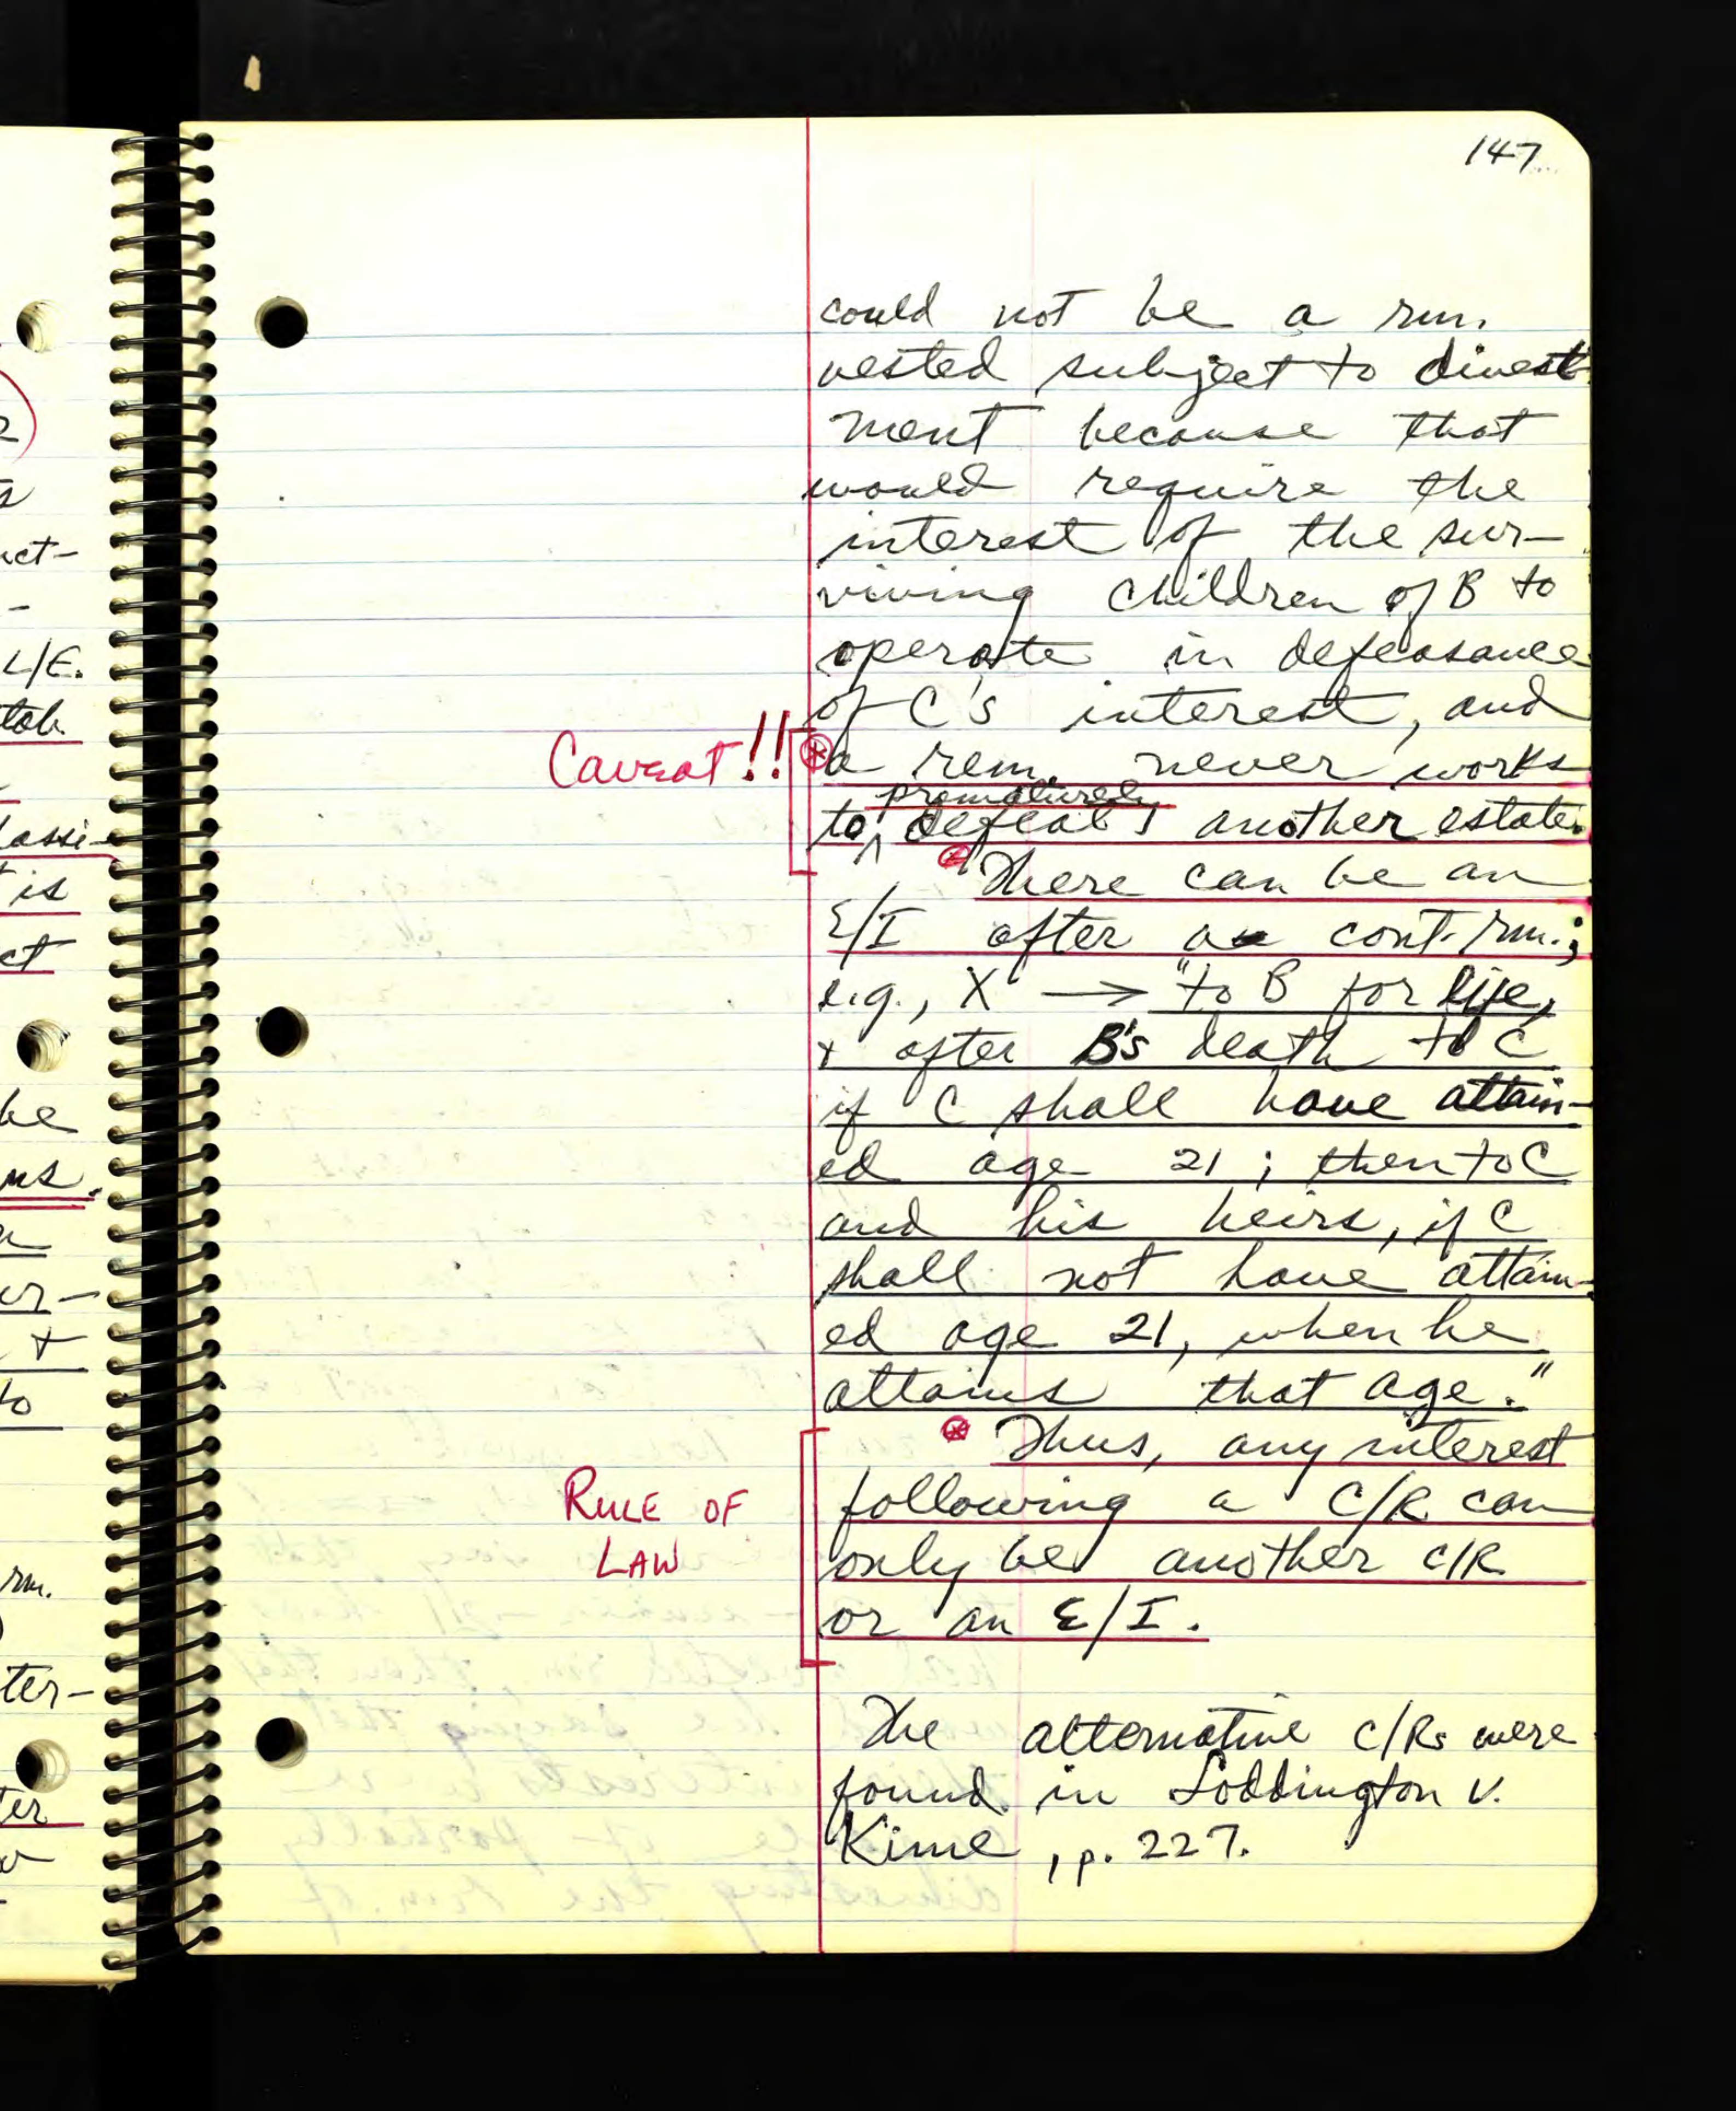 147
could not be a rm.
vested subject to divest
ment because that
would require the
interest of the sur-
viving children of B to
operate in defeasance
of C's interest, and
Caveat!!
a rem. never works
prematurely
to defeat another estate.
There can be an
E/I after a cont. rm.;
e.g., X → "to B for life,
+ after B's death to C
if C shall have attain-
ed age 21; then to C
and his heirs, if C
shall not have attain-
ed age 21, when he
attains that age."
Thus, any interest
RULE OF
LAW
following a C/R can
only be another C/R
or an E/I.
The alternative C/Rs were
found in Loddington v.
Kime, p. 227.
L/E.
is
ct
he
er-
+
to
rm.
ter-